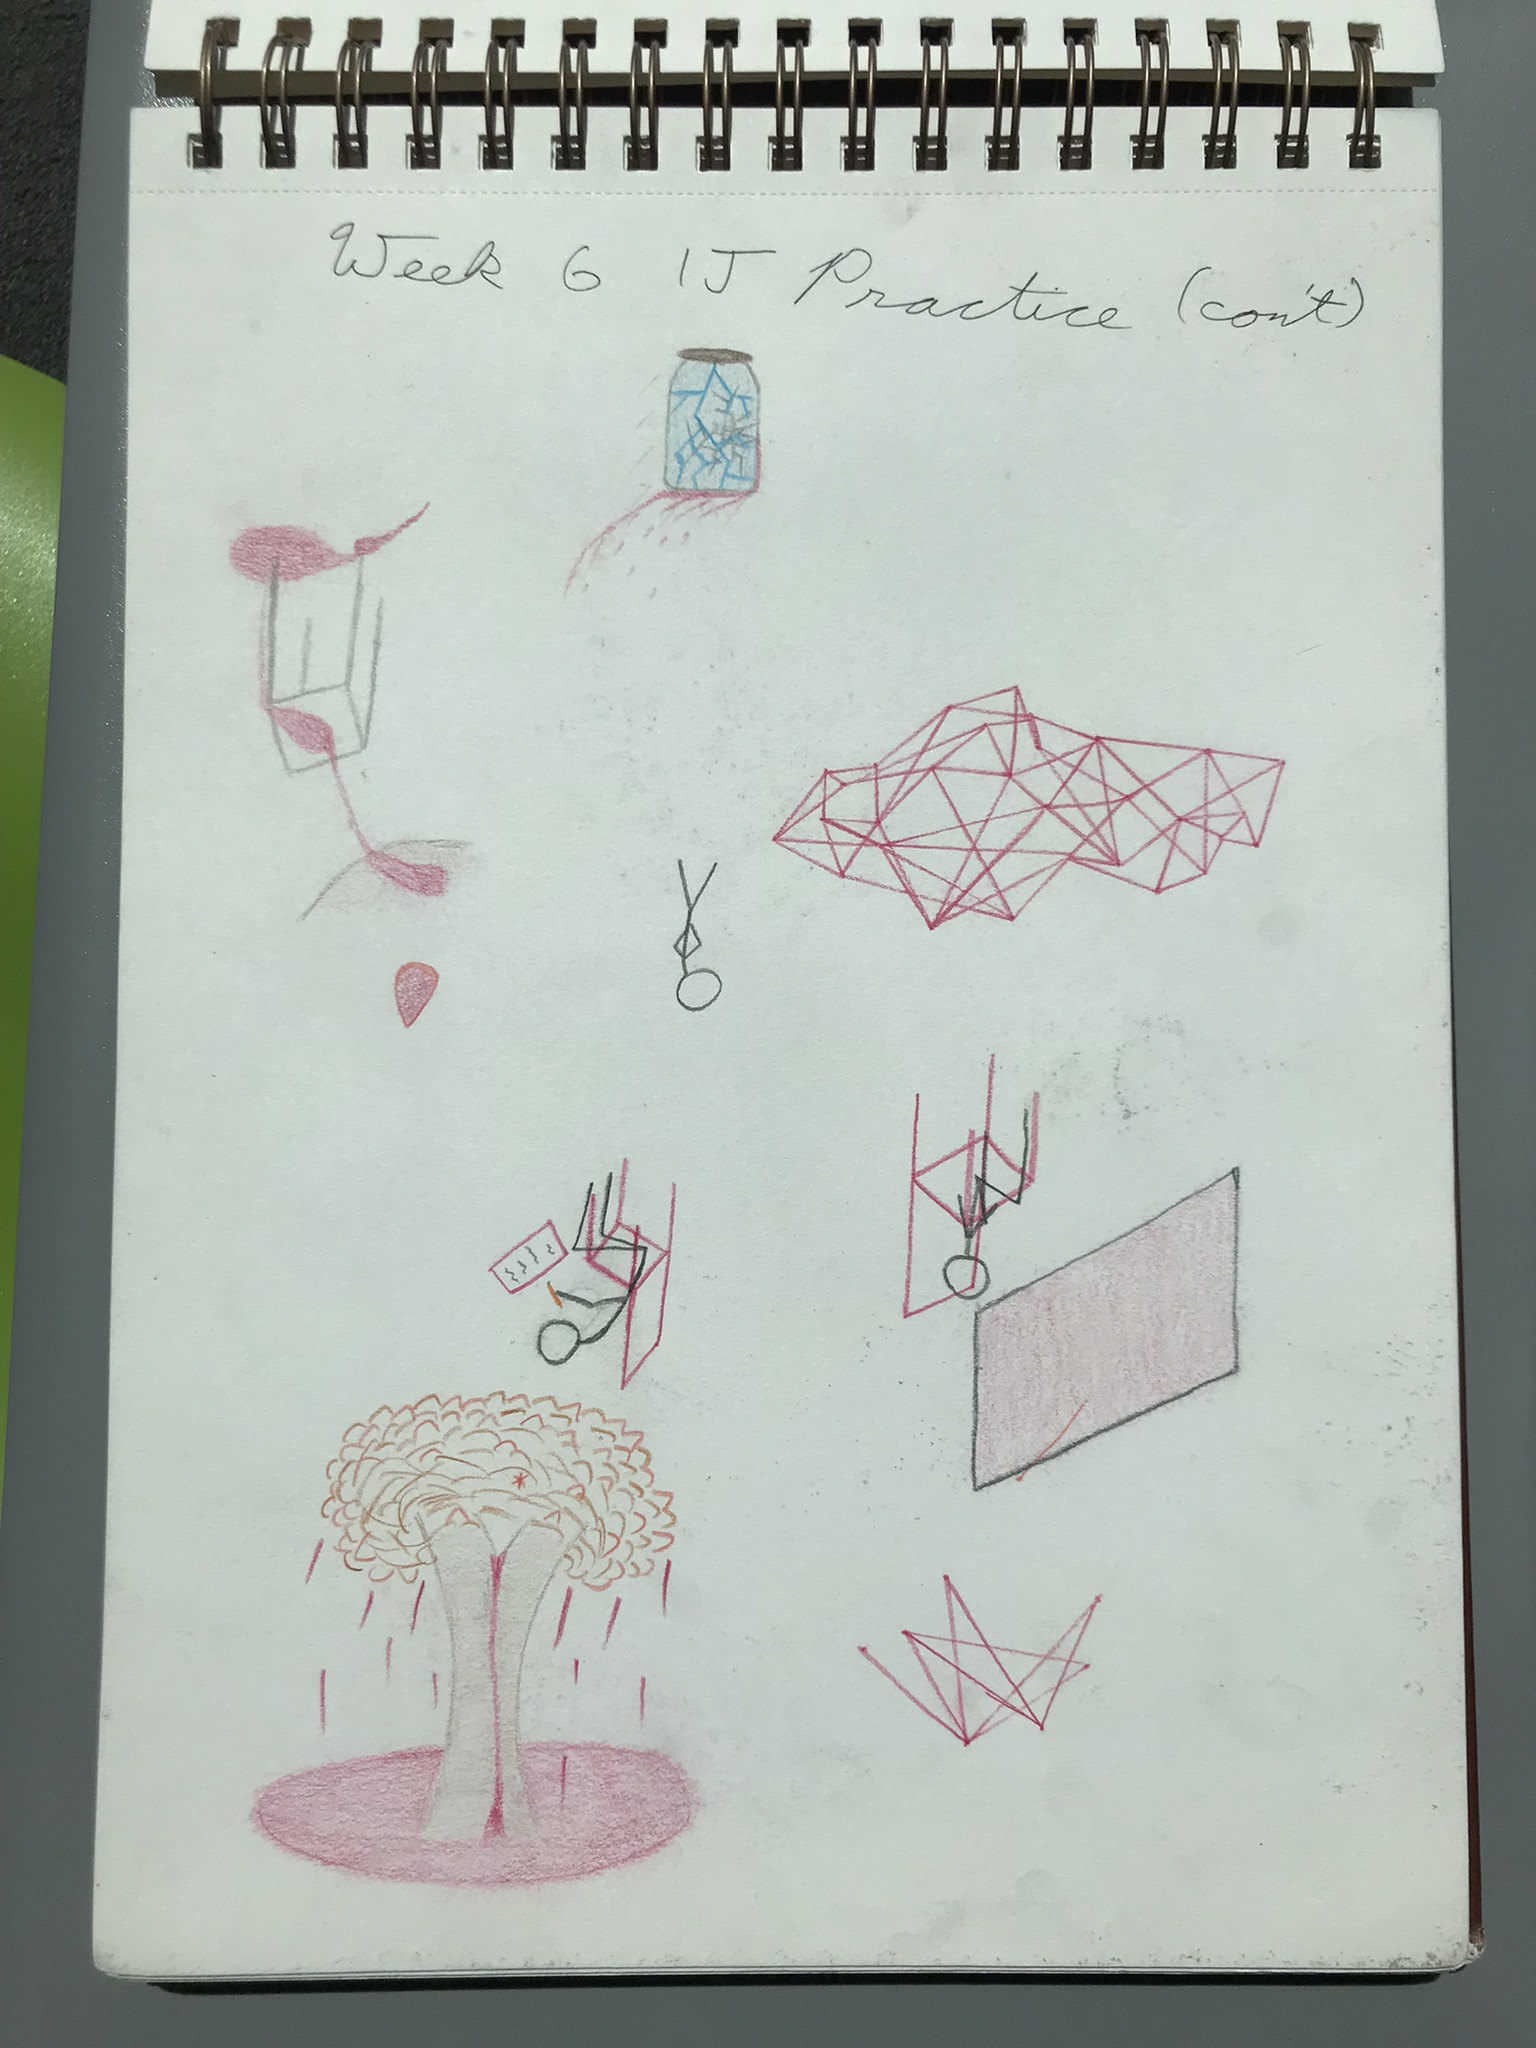 Week 6 IJ Practice (con't)